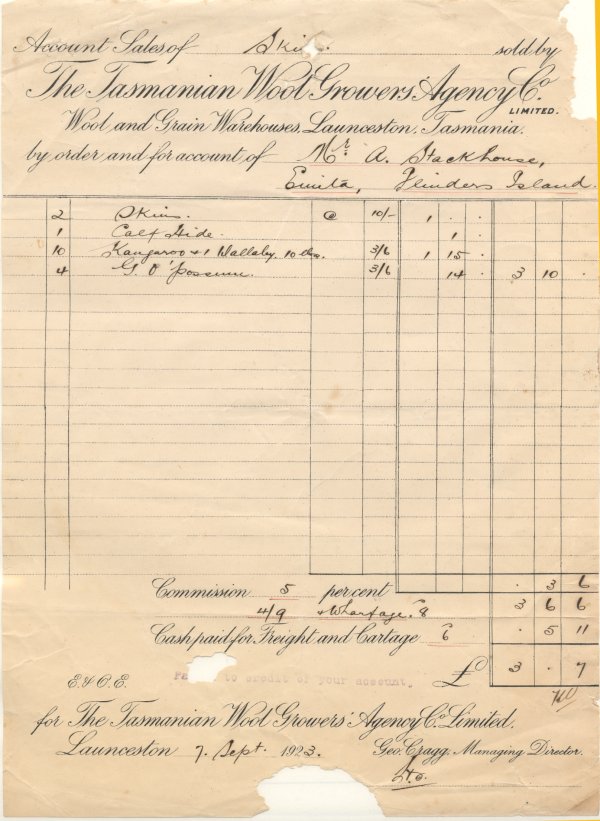 Account Sales of Skins. sold by
The Tasmanian Wool Growers' Agency Co. LIMITED.
Wool and Grain Warehouses, Launceston, Tasmania.
by order and for account of Mr. A. Stackhouse,
Emita, Flinders Island.
2 Skins. @ 10/- 1 . .
1 Calf Hide. 1 .
10 Kangaroo & 1 Wallaby, 10 lbs. 3/6 1 15 .
4 G. O'possum. 3/6 14 . 3 10 .
Commission 5 per cent . 3 6
4/9 & Wharfage. 8 3 6 6
Cash paid for Freight and Cartage 6 . 5 11
to credit of your account. £ 3 . 7
E. & O. E.
for The Tasmanian Wool Growers' Agency Co. Limited.
Launceston 7. Sept. 1923. Geo. Cragg. Managing Director.